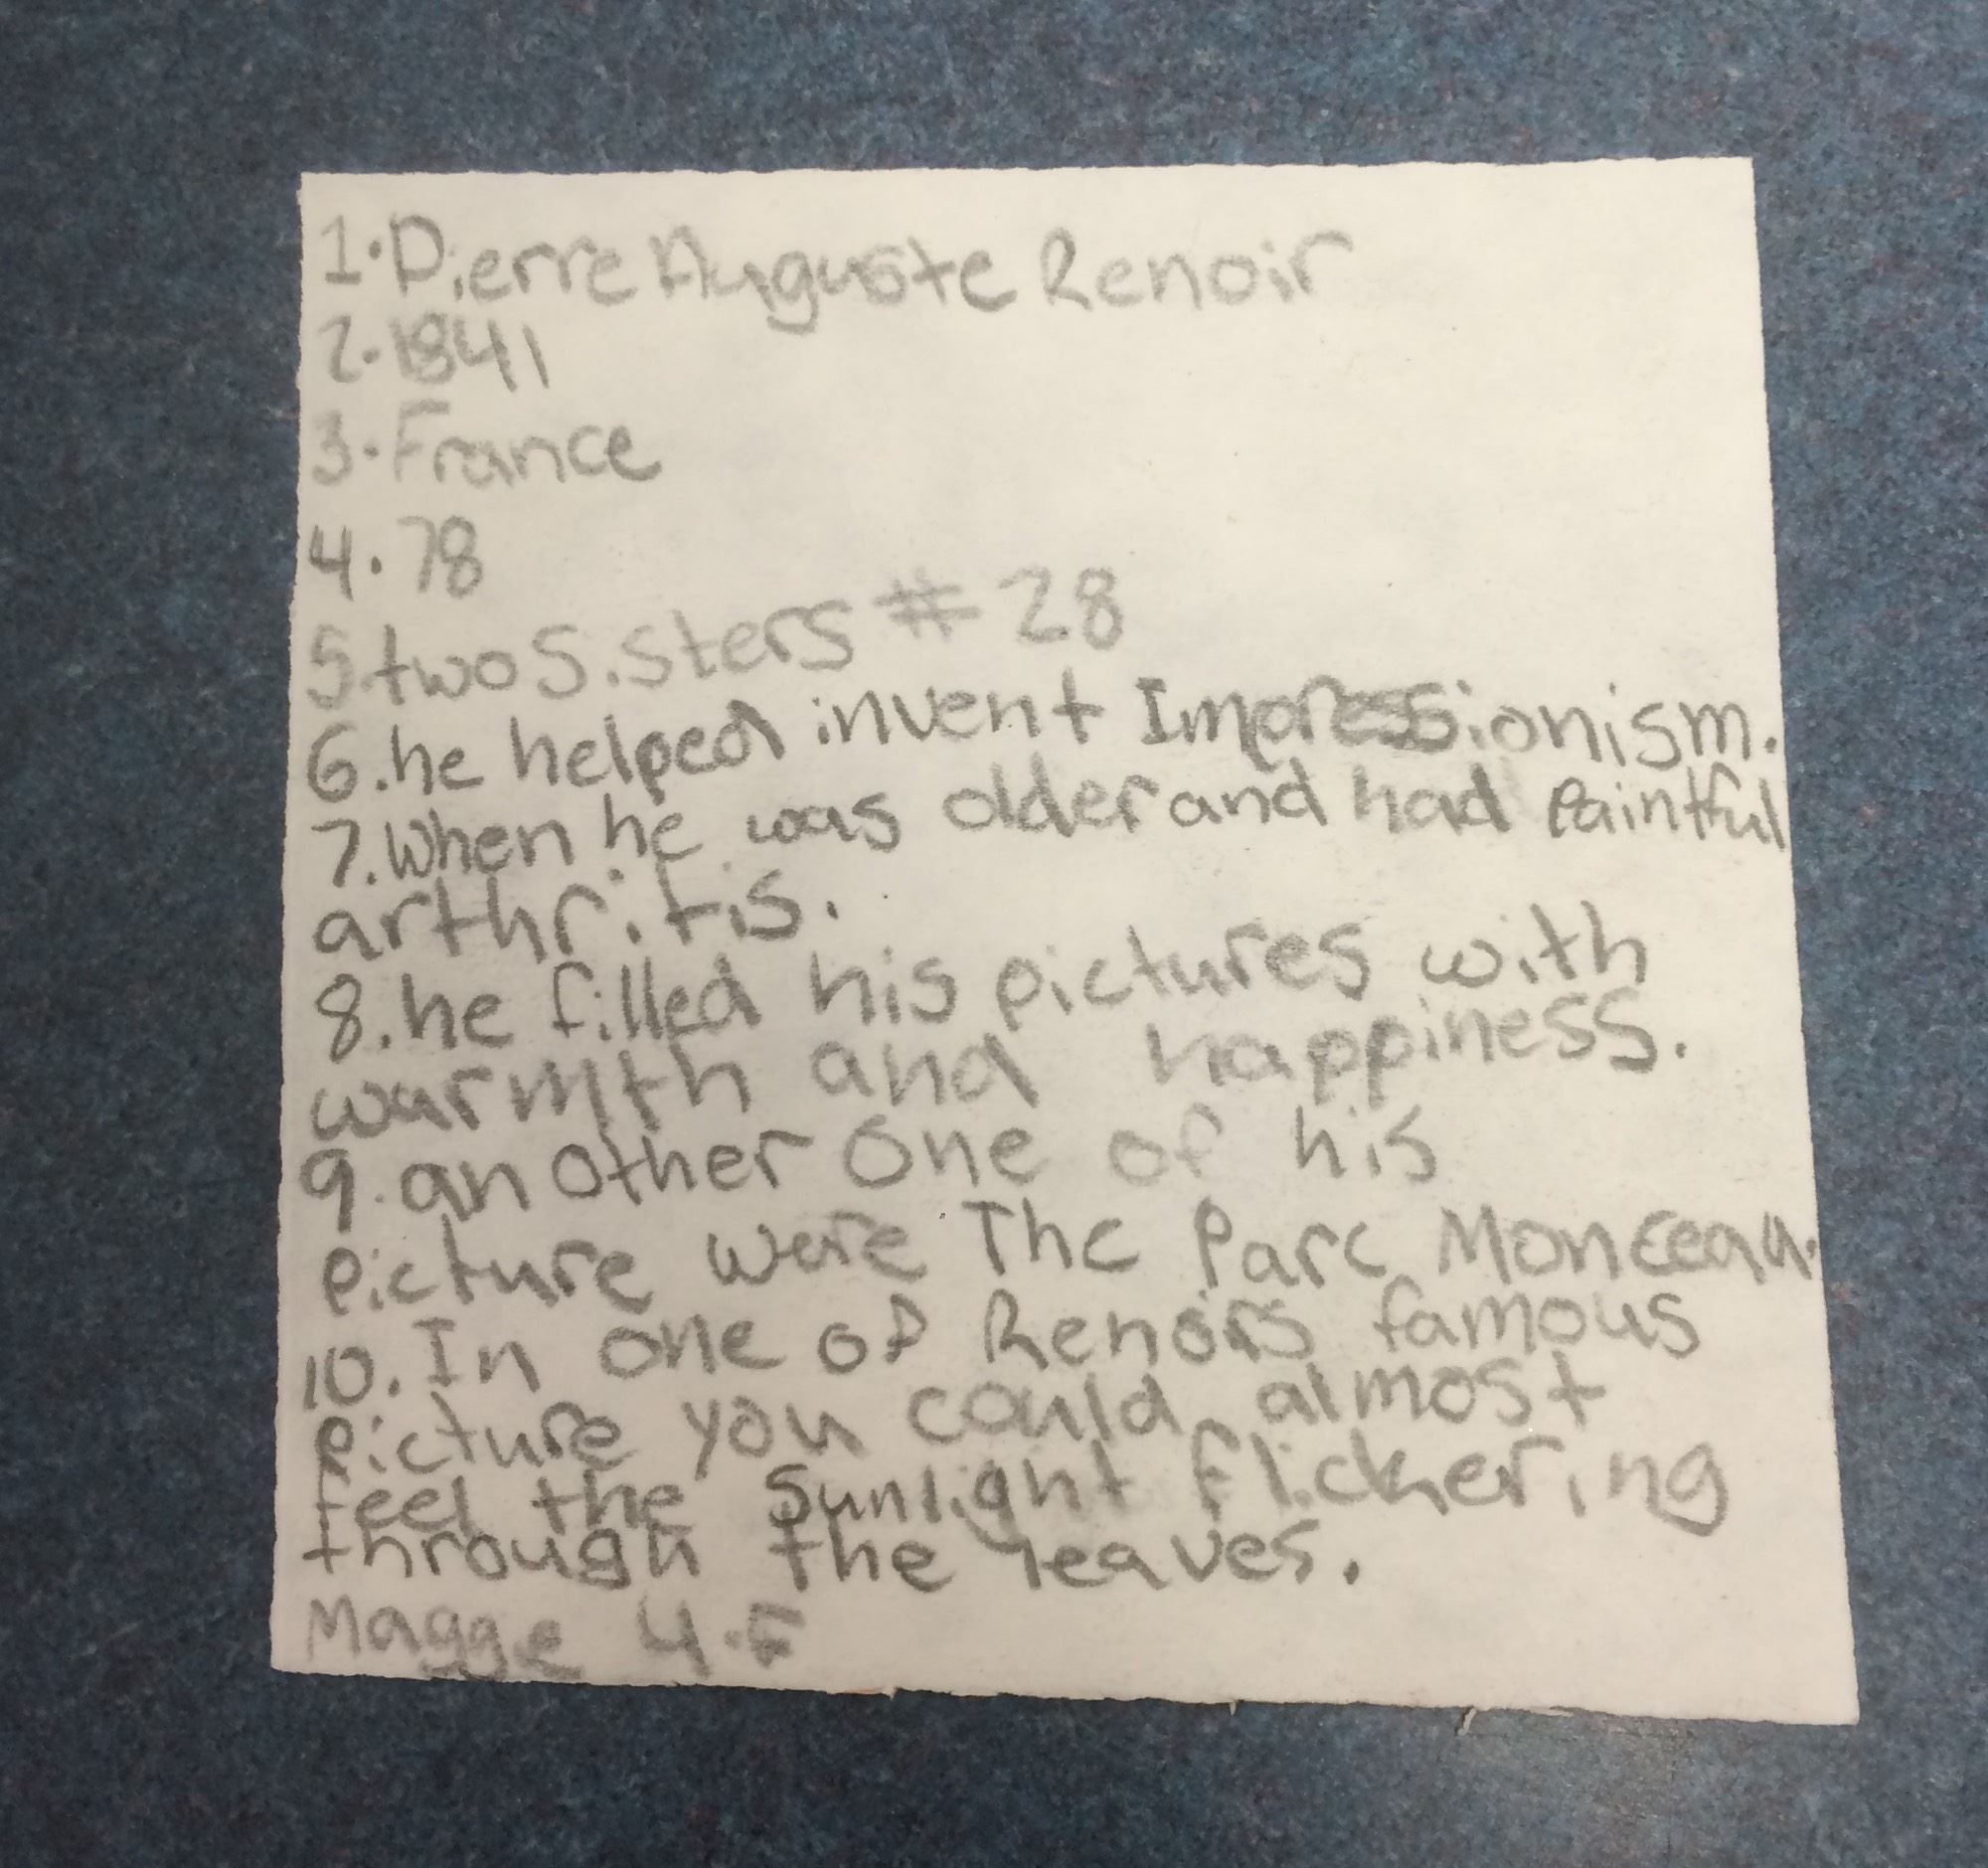 1. Pierre Auguste Renoir
2. 1841
3. France
4. 78
5. two Sisters # 28
6. he helped invent Impressionism.
7. When he was older and had Paintful
arthritis.
8. he filled his pictures with
warmth and happiness.
9. an other one of his
Picture were The Parc Monceau.
10. In one of Renoirs famous
Picture you could almost
feel the Sunlight flickering
through the leaves.
Magge 4.F